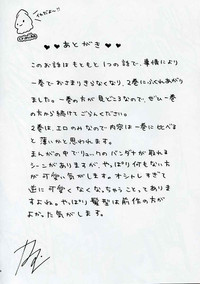 ♥♥ あとがき ♥♥
このお話はもともと1つの話で、事情により
一巻でおさまりきらなくなり、2巻にふくれあがり
ました。一巻の方が見どころなので、ぜひ一巻
の方から続けてごらんください。
2巻は、エロのみなので内容は一巻に比べると
と薄いかと思われます。
まんがの中でリュックのバンダナが取れる
シーンがありますが、やっぱり何もない方
が可愛い気がします。オシャレすぎて
逆に可愛くなくなっちゃうことってあり
ますよね。やっぱり髪型は前作の方が
よかった気がします。